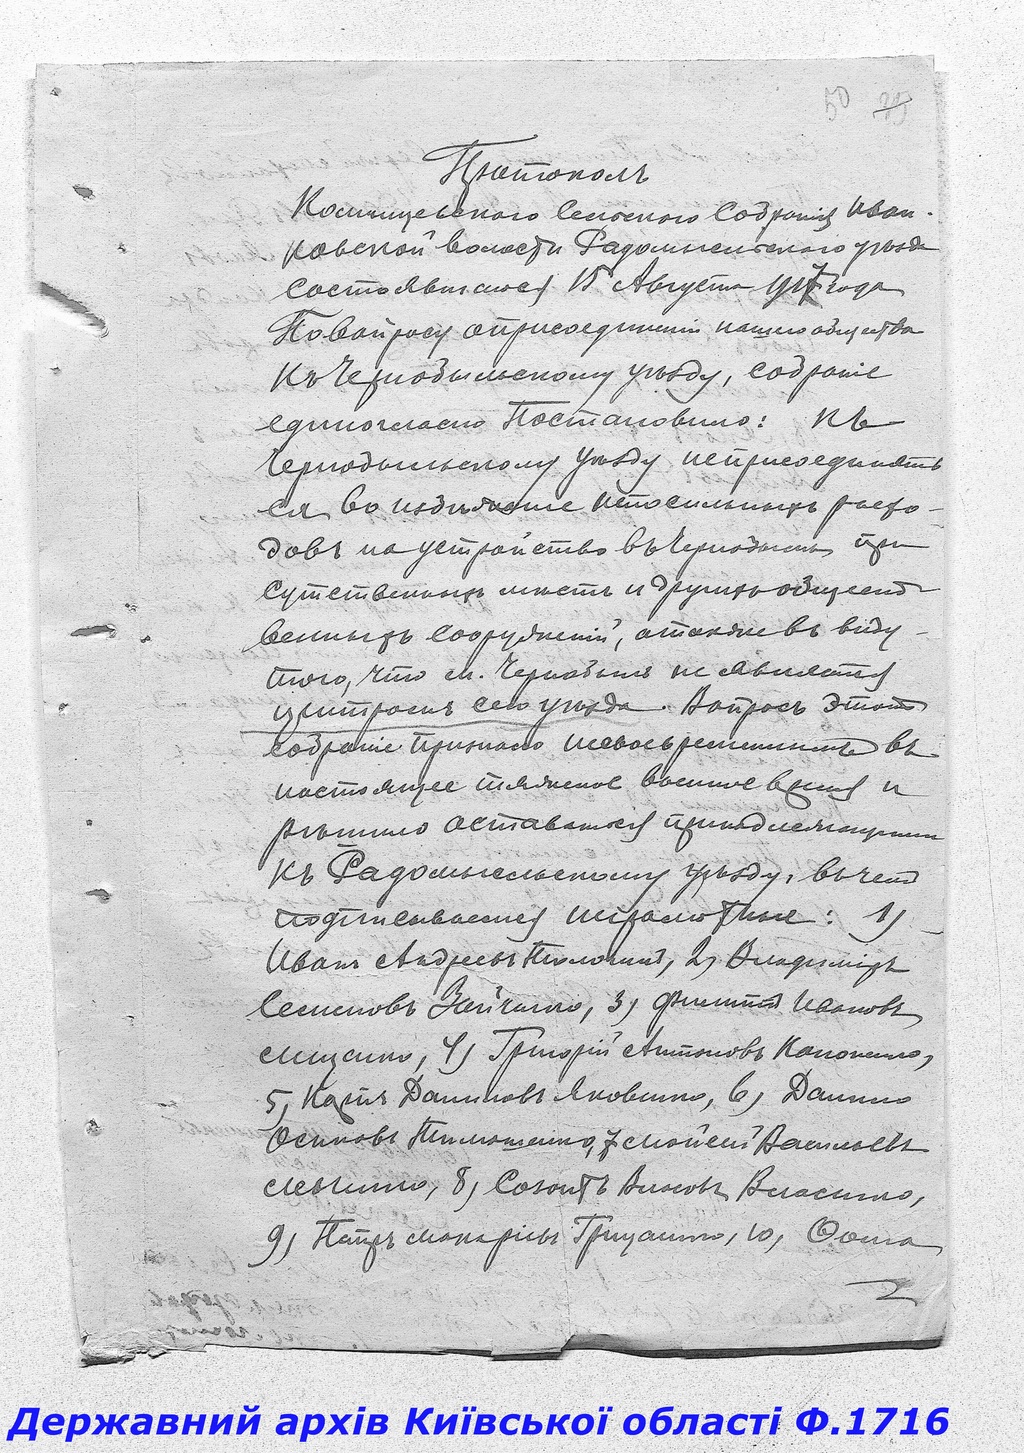 50 25
Протоколъ
Сельскаго Собранія Иван-
ковской волости Радомысльскаго уѣзда
состоявшагося 15 Августа 1917 года
По вопросу о присоединеніи нашего общества
къ Чернобыльскому уѣзду, собраніе
единогласно Постановило: къ
Чернобыльскому уѣзду не присоединять
ся во избѣжаніе непосильныхъ расхо-
довъ на устройство въ Чернобылѣ при
сутственныхъ мѣстъ и другихъ обществ
венныхъ сооруженій, а также въ виду
того, что м. Чернобыль не является
центромъ сего уѣзда. Вопросъ этотъ
собраніе признало несвоевременнымъ въ
настоящее тяжелое военное время и
рѣшило оставаться принадлежащими
къ Радомысльскому уѣзду, въ чемъ
подписываемся неграмотные: 1)
Иванъ Андреевъ 2) Владиміръ
Семеновъ Зайченко, 3) Филиппъ Ивановъ
4) Григорій Антоновъ Кононенко,
5) Даниловъ Яковенко, 6) Данило
Осиповъ Тимошенко, 7 Мойсей Васильевъ
8) Созонтъ Власенко,
9) Петръ Макарьевъ Грищенко, 10) Фома
Державний архів Київської області Ф.1716